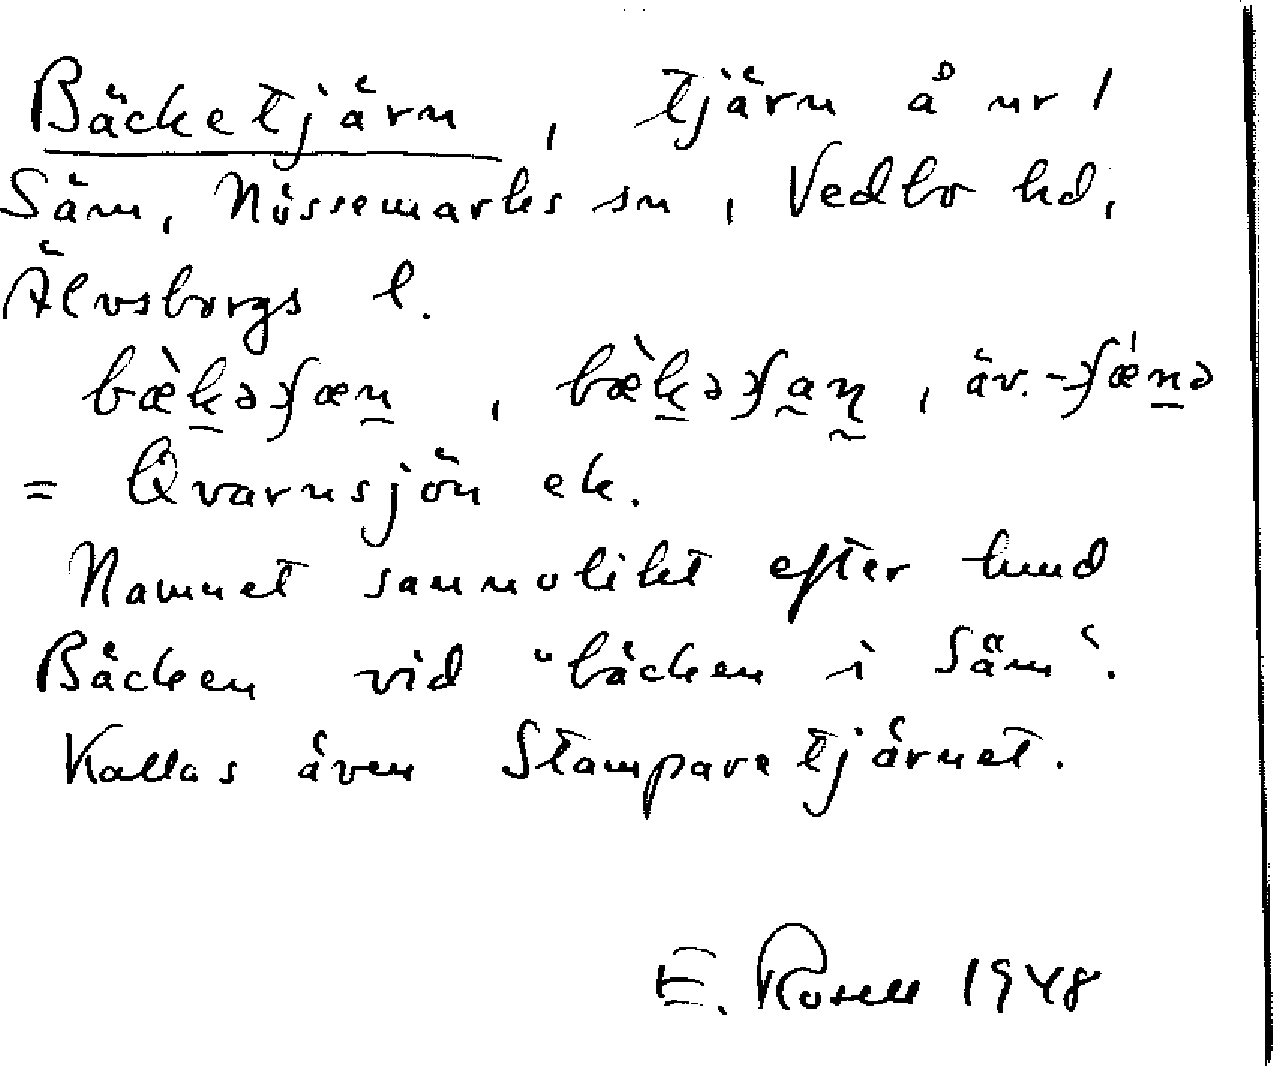 Bäcketjärn, tjärn å nr 1
Säm, Nössemarks sn, Vedbo hd,
Älvsborgs l.
bæ̀kəʃæn, bæ̀kəʃan, äv. -ʃǽnə
= Qvarnsjön ek.
Namnet sannolikt efter lund
Bäcken vid "bäcken i Säm".
Kallas även Stamparetjärnet.
E. Rosell 1948